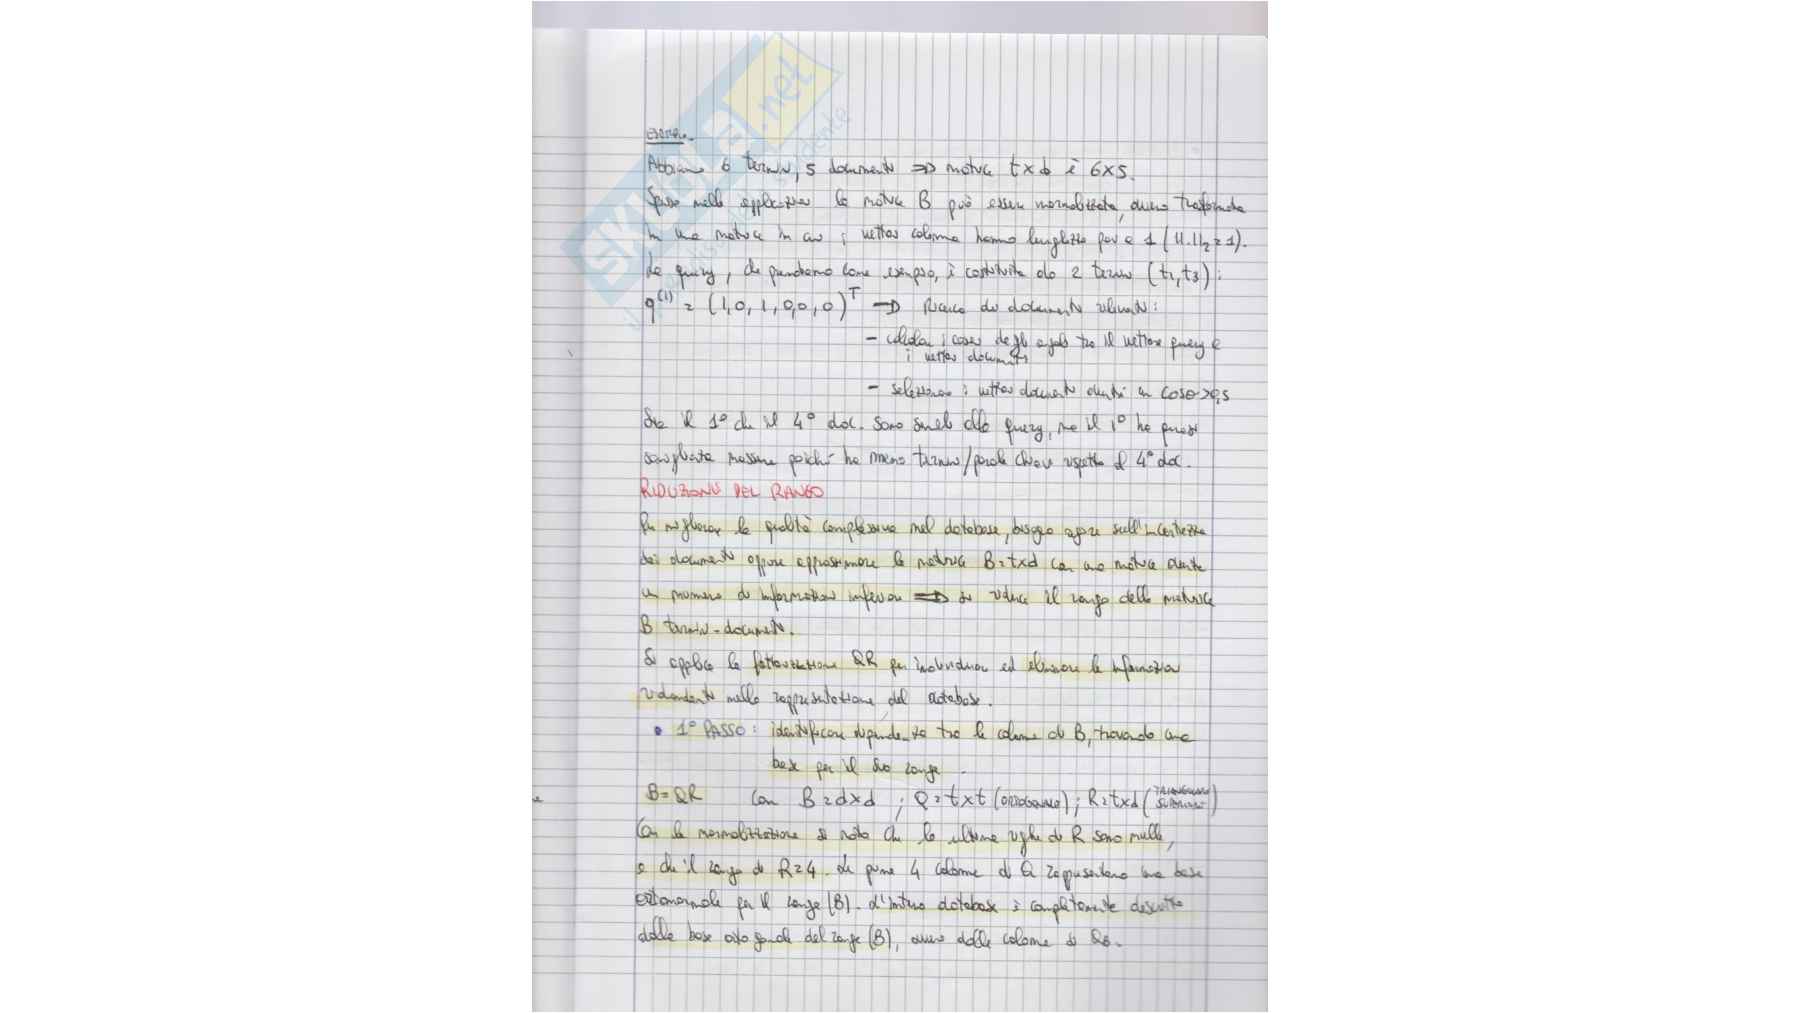 Esempio.
Abbiamo 6 termini, 5 documenti ⇒ matrice t×d è 6×5.
Spesso nelle applicazioni la matrice B può essere normalizzata, ovvero trasformata
in una matrice in cui i vettori colonna hanno lunghezza pari a 1 (||.||₂=1).
La query, che prendiamo come esempio, è costituita da 2 termini (t₁,t₃):
q⁽¹⁾ = (1,0,1,0,0,0)ᵀ ⇒ Ricerca dei documenti rilevanti:
- calcolare i coseni degli angoli tra il vettore query e
i vettori documenti
- selezionare i vettori documenti aventi un cosθ>0,5
Sia il 1° che il 4° doc. sono simili alla query, ma il 1° ha quasi
somiglianza massima poiché ha meno termini/parole chiave rispetto al 4° doc.
RIDUZIONE DEL RANGO
Per migliorare la qualità complessiva nel database, bisogna agire sull'incertezza
dei documenti oppure approssimare la matrice B=t×d con una matrice avente
un numero di informazioni inferiori ⇒ si riduce il rango della matrice
B termini-documenti.
Si applica la fattorizzazione QR per individuare ed eliminare le informazioni
ridondanti nella rappresentazione del database.
• 1° PASSO: identificare dipendenza tra le colonne di B, trovando una
base per il suo range.
B=QR con B=d×d ; Q=t×t (ORTOGONALE); R=t×d (TRIANGOLARE SUPERIORE)
Con la normalizzazione si nota che le ultime righe di R sono nulle,
e che il rango di R=4. Le prime 4 colonne di Q rappresentano una base
ortonormale per il range (B). L'intero database è completamente descritto
dalla base ortogonale del range (B), ovvero dalle colonne di
skuola.net